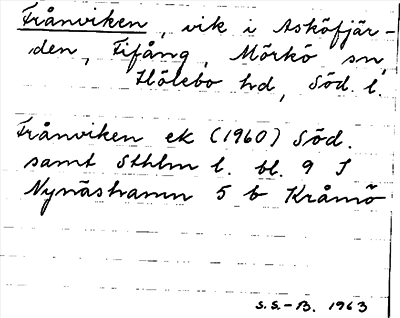 Frånviken, vik i Asköfjär-
den, Fifång, Mörkö sn,
Hölebo hd, Söd. l.
Frånviken ek (1960) Söd.
samt Sthlm l. bl. 9 I
Nynäshamn 5 b Kråmö
S.S.-B. 1963